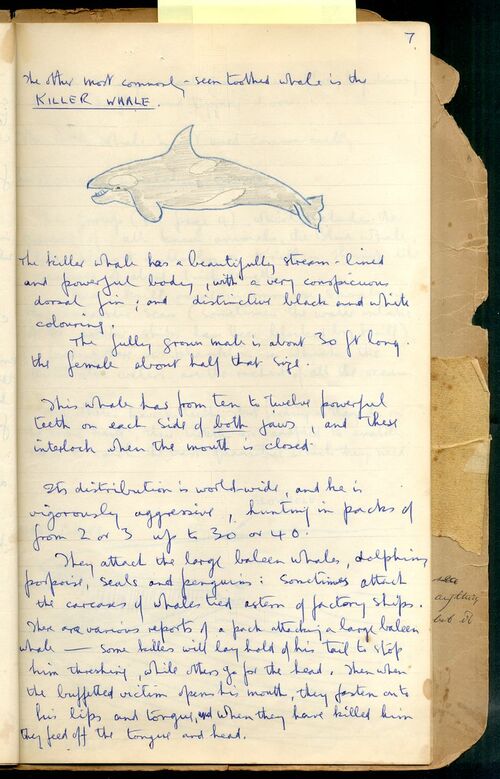 7
The other most commonly-seen toothed whale is the
KILLER WHALE.
The killer whale has a beautifully stream-lined
and powerful body, with a very conspicuous
dorsal fin; and distinctive black and white
colouring.
The fully grown male is about 30 ft long.
the female about half that size.
This whale has from ten to twelve powerful
teeth on each side of both jaws, and these
interlock when the mouth is closed.
Its distribution is world-wide, and he is
vigorously aggressive, hunting in packs of
from 2 or 3 up to 30 or 40.
They attack the large baleen whales, dolphins,
porpoise, seals and penguins: sometimes attack
the carcases of whales tied astern of factory ships.
There are various reports of a pack attacking a large baleen
whale — some killers will lay hold of his tail to stop
him threshing, while others go for the head. Then when
the buffetted victim opens his mouth, they fasten onto
his lips and tongue, and when they have killed him
they feed off the tongue and head.